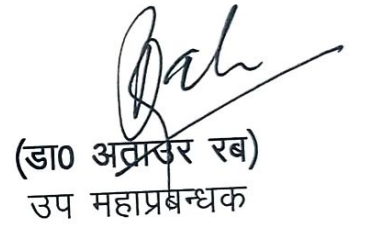 (डा0 अताउर रब)
उप महाप्रबन्धक